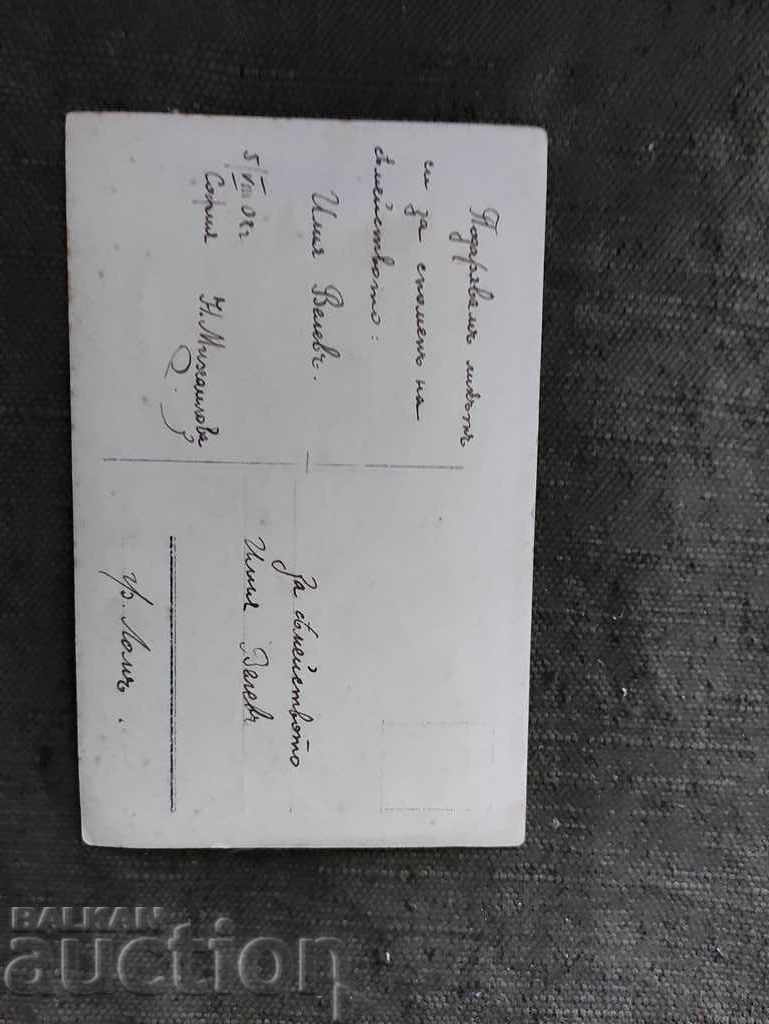 Подарявамъ ликътъ
си за споменъ на
сѣмейството:
Илия Велевъ.
5/VIII 08г
София Н. Михайлова
За сѣмейството
Илия Велевъ
гр. Ломъ.
BALKAN
auction